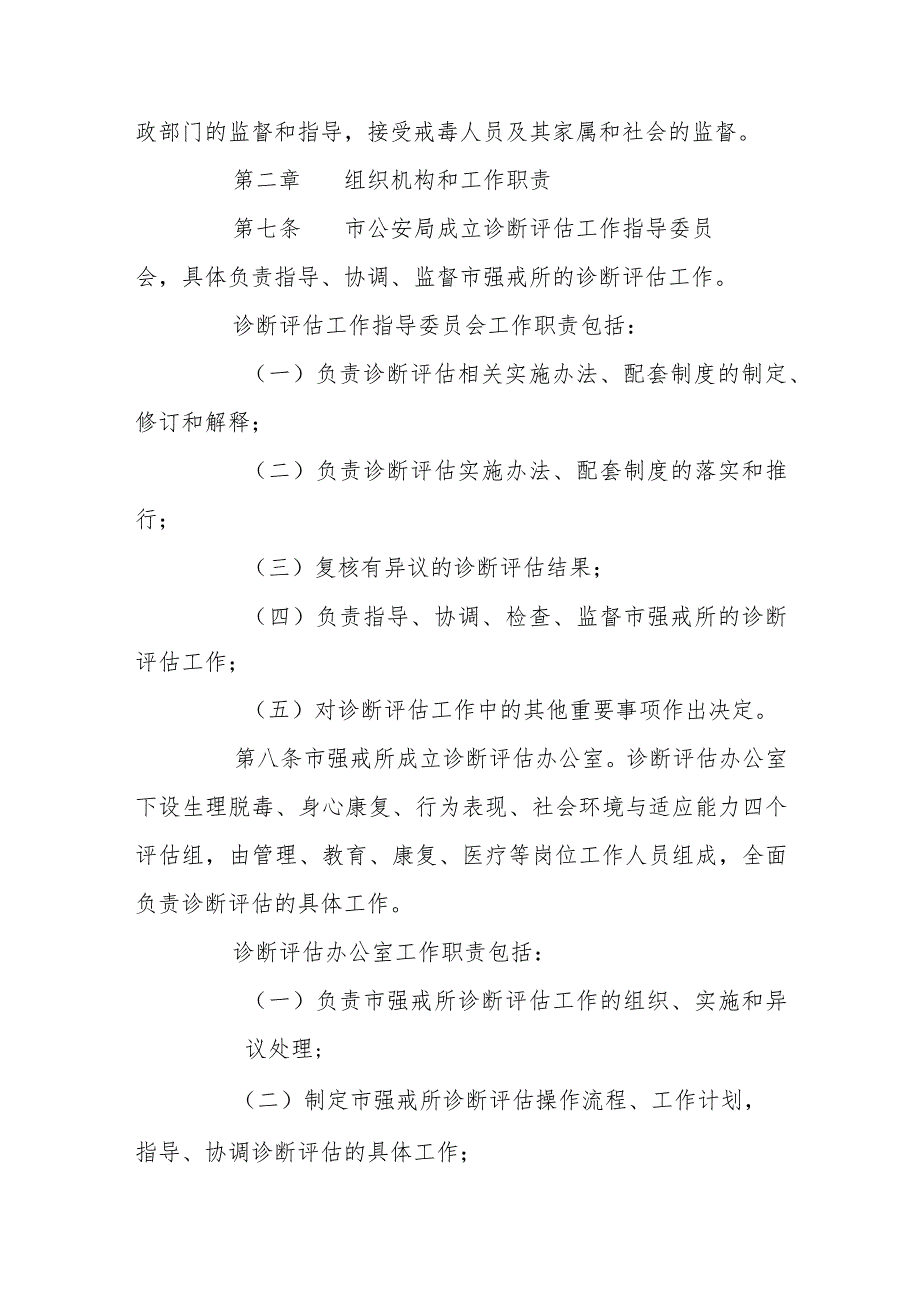 政部门的监督和指导，接受戒毒人员及其家属和社会的监督。
第二章 组织机构和工作职责
第七条 市公安局成立诊断评估工作指导委员
会，具体负责指导、协调、监督市强戒所的诊断评估工作。
诊断评估工作指导委员会工作职责包括：
（一）负责诊断评估相关实施办法、配套制度的制定、
修订和解释；
（二）负责诊断评估实施办法、配套制度的落实和推
行；
（三）复核有异议的诊断评估结果；
（四）负责指导、协调、检查、监督市强戒所的诊断
评估工作；
（五）对诊断评估工作中的其他重要事项作出决定。
第八条市强戒所成立诊断评估办公室。诊断评估办公室
下设生理脱毒、身心康复、行为表现、社会环境与适应能力四个
评估组，由管理、教育、康复、医疗等岗位工作人员组成，全面
负责诊断评估的具体工作。
诊断评估办公室工作职责包括：
（一）负责市强戒所诊断评估工作的组织、实施和异
议处理;
（二）制定市强戒所诊断评估操作流程、工作计划，
指导、协调诊断评估的具体工作；